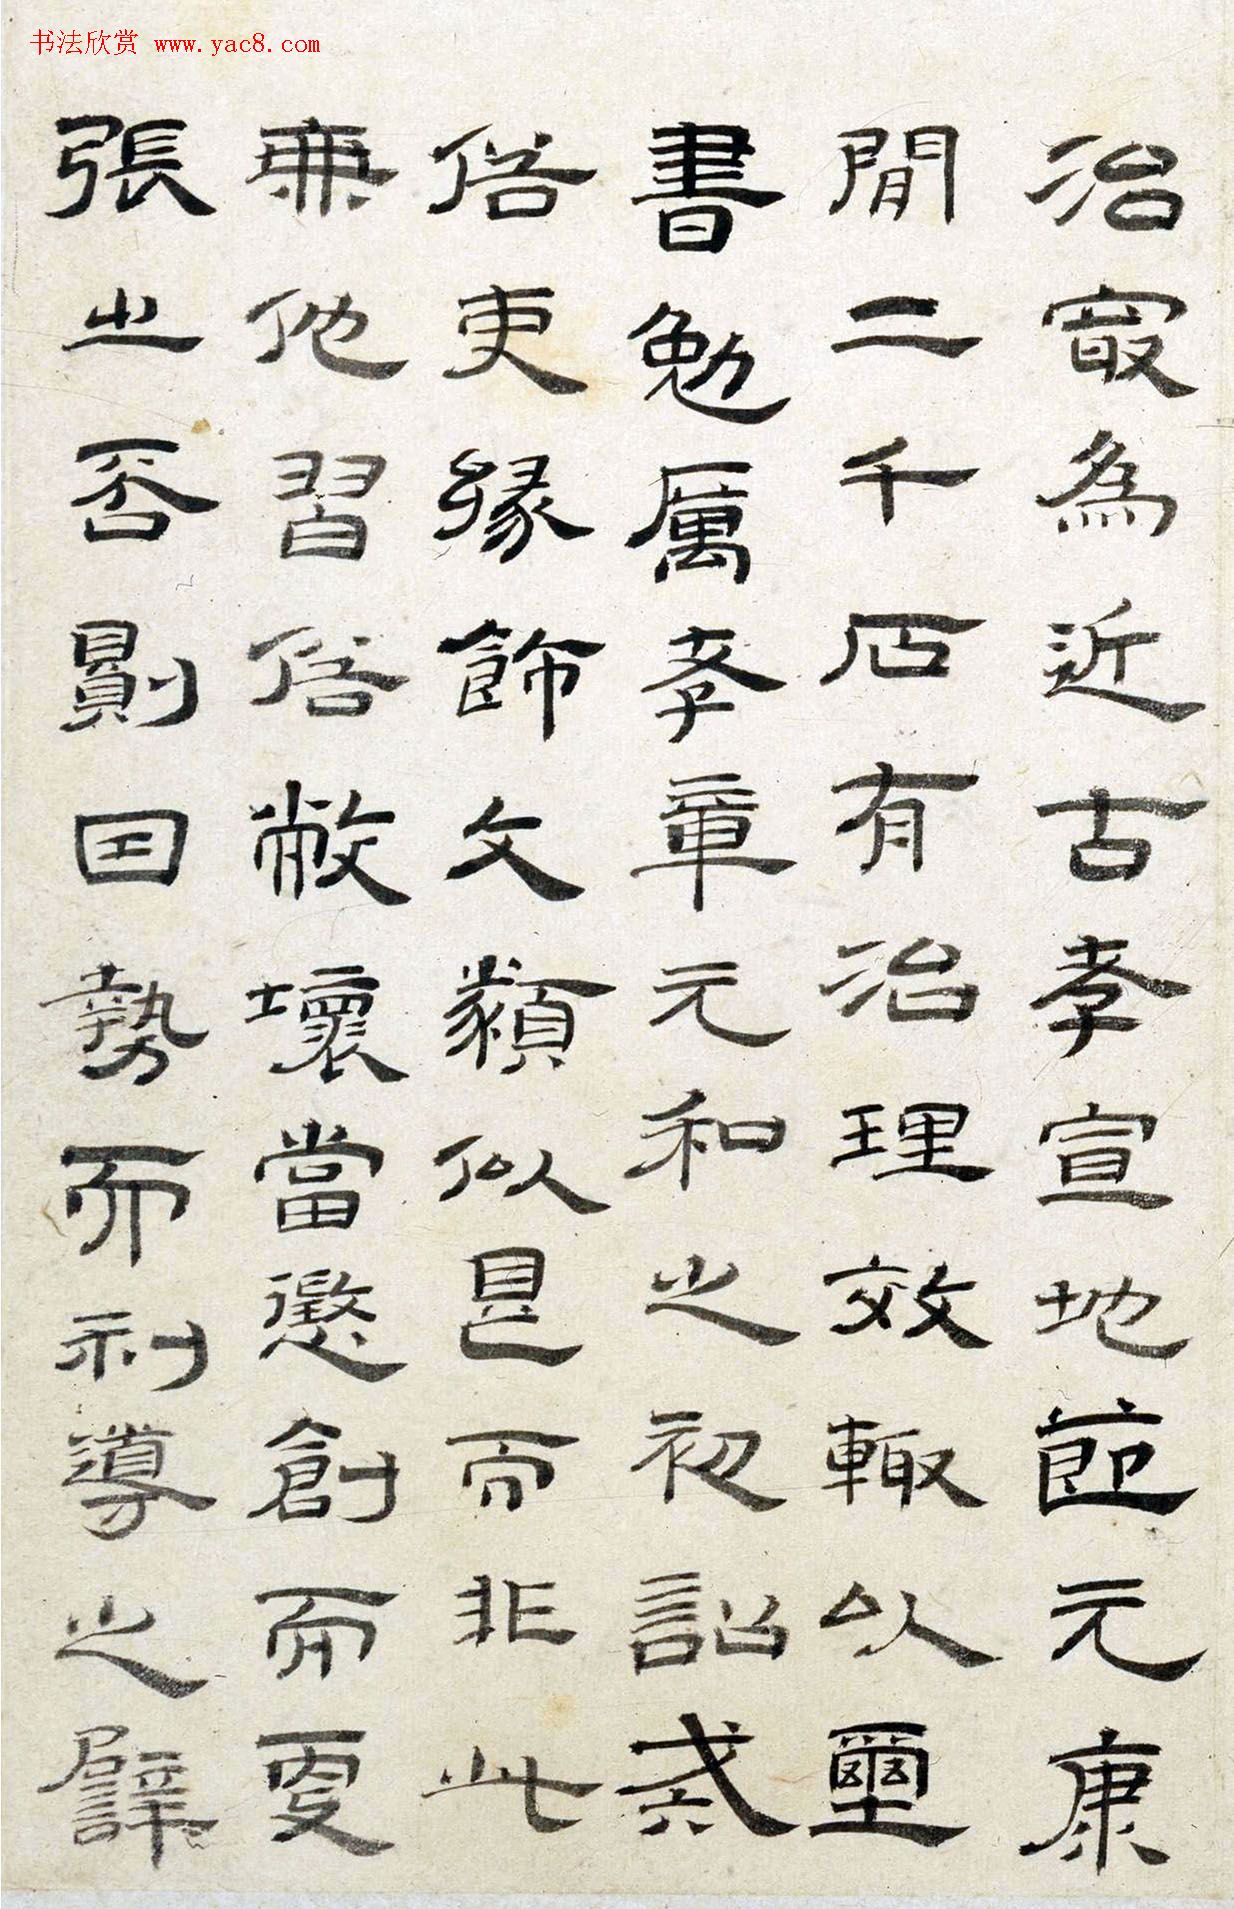 书法欣赏 www.yac8.com
治冣為近古孝宣地節元康
閒二千石有治理效輙以璽
書勉厲孝章元和之初詔戒
俗吏緣飾文類似是而非此
兼他習俗敝壞當懲創而更
張之否則因勢而利導之譬